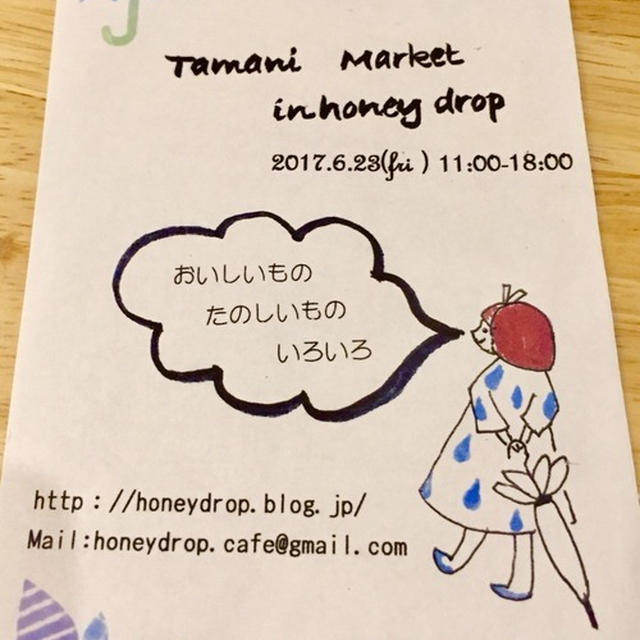 Tamani Market
in honey drop
2017.6.23(fri) 11:00-18:00
おいしいもの
たのしいもの
いろいろ
http://honeydrop.blog.jp/
Mail:honeydrop.cafe@gmail.com